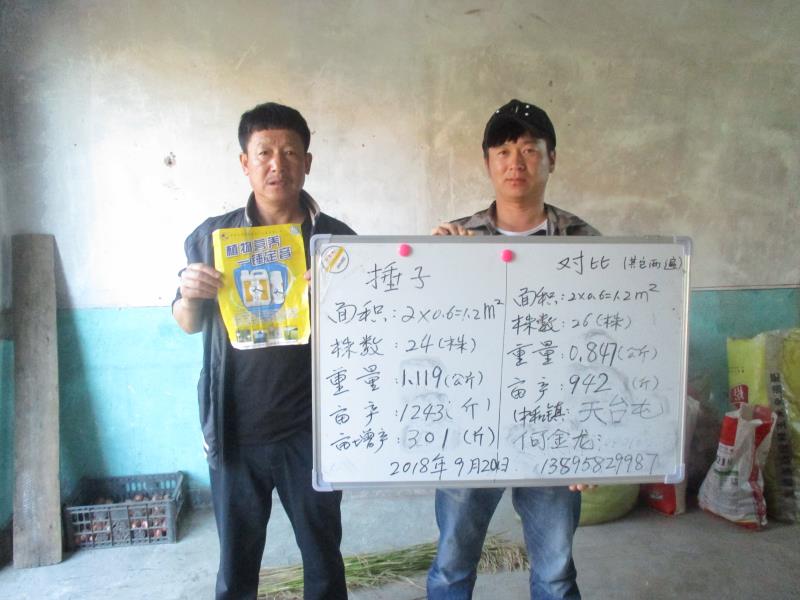 植物营养
一锤定音
捶子
面积:2×0.6=1.2m²
株数:24(株)
重量:1.119(公斤)
亩产:1243(斤)
亩增产:301(斤)
对比(其它两遍)
面积:2×0.6=1.2m²
株数:26(株)
重量:0.847(公斤)
亩产:942(斤)
镇:天台屯
何金龙:
13895829987
2018年9月20日